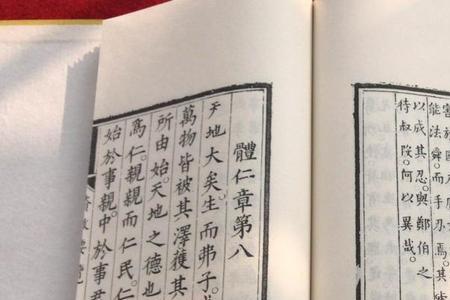 能法舜。而手刃焉。其
以成其忍。與鄭伯之
待叔段。何以異哉。
體仁章第八
天地大矣。生而弗子。
萬物皆被其澤獲其
所由始。天地之德也
爲仁。親親而仁民。仁
始於事親。中於事君